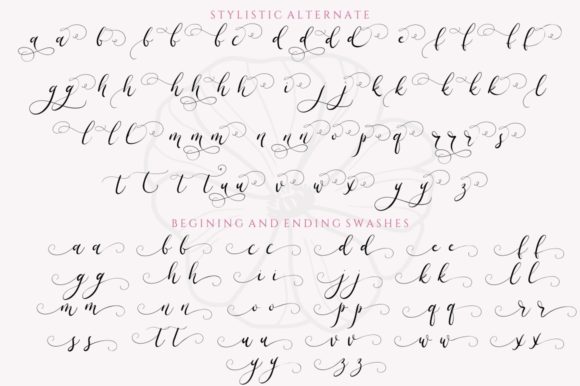 STYLISTIC ALTERNATE
a a b b b b c d d d d e f f f
g g h h h h h h i j j k k k k k l
l l l m m m n n n o p q r r r s
t t t t u u v w x y y z
BEGINING AND ENDING SWASHES
a a b b c c d d e e f f
g g h h i i j j k k l l
m m n n o o p p q q r r
s s t t u u v v w w x x
y y z z